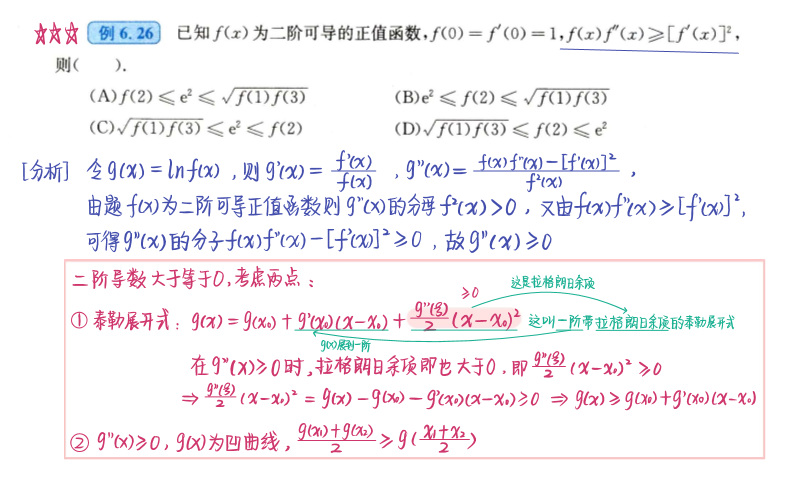 ☆☆☆ 例 6.26 已知 f(x) 为二阶可导的正值函数, f(0)=f′(0)=1, f(x)f″(x)≥[f′(x)]²,
则( ).
(A) f(2)≤e²≤√f(1)f(3) (B) e²≤f(2)≤√f(1)f(3)
(C) √f(1)f(3)≤e²≤f(2) (D) √f(1)f(3)≤f(2)≤e²
[分析] 令 g(x)=lnf(x) , 则 g′(x)= f′(x)/f(x) , g″(x)= f(x)f″(x)-[f′(x)]²/f²(x) ,
由题 f(x)为二阶可导正值函数则 g″(x)的分母 f²(x)>0 , 又由f(x)f″(x)≥[f′(x)]²,
可得g″(x)的分子f(x)f″(x)-[f′(x)]²≥0 , 故g″(x)≥0
二阶导数大于等于0,考虑两点:
≥0 这是拉格朗日余项
① 泰勒展开式: g(x)=g(x₀)+g′(x₀)(x-x₀)+ g″(ξ)/2 (x-x₀)² 这叫一阶带拉格朗日余项的泰勒展开式
g(x)展到一阶
在g″(x)≥0时,拉格朗日余项即也大于0,即 g″(ξ)/2 (x-x₀)²≥0
⇒ g″(ξ)/2 (x-x₀)² = g(x)-g(x₀)-g′(x₀)(x-x₀)≥0 ⇒ g(x)≥g(x₀)+g′(x₀)(x-x₀)
② g″(x)≥0, g(x)为凹曲线, g(x₁)+g(x₂)/2 ≥ g( x₁+x₂/2 )